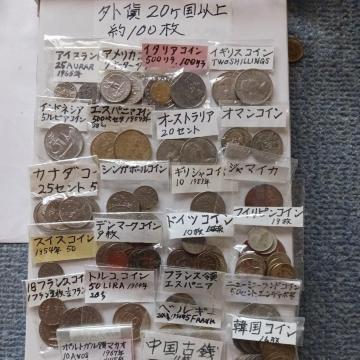 外貨20ヶ国以上
約100枚
アイスランド
25AURAR
1965年
アメリカコイン
イタリアコイン
500リラ、100リラ
イギリスコイン
TWO SHILLINGS
インドネシア
5ルピアコイン
エスパニアコイン
オーストラリア
20セント
オマンコイン
カナダコ
25セント 5
シンガポールコイン
ギリシャコイン
10
ジャマイカ
スイスコイン
1954年 50
デンマークコイン
9枚
ドイツコイン
10枚
フィリピンコイン
旧フランスコイン
トルココイン
50 LIRA
フランス領
エスパニア
ニュージーランドコイン
ポルトガル領マカオ
10 AVOS
ベルギー
中国古銭
韓国コイン
16枚